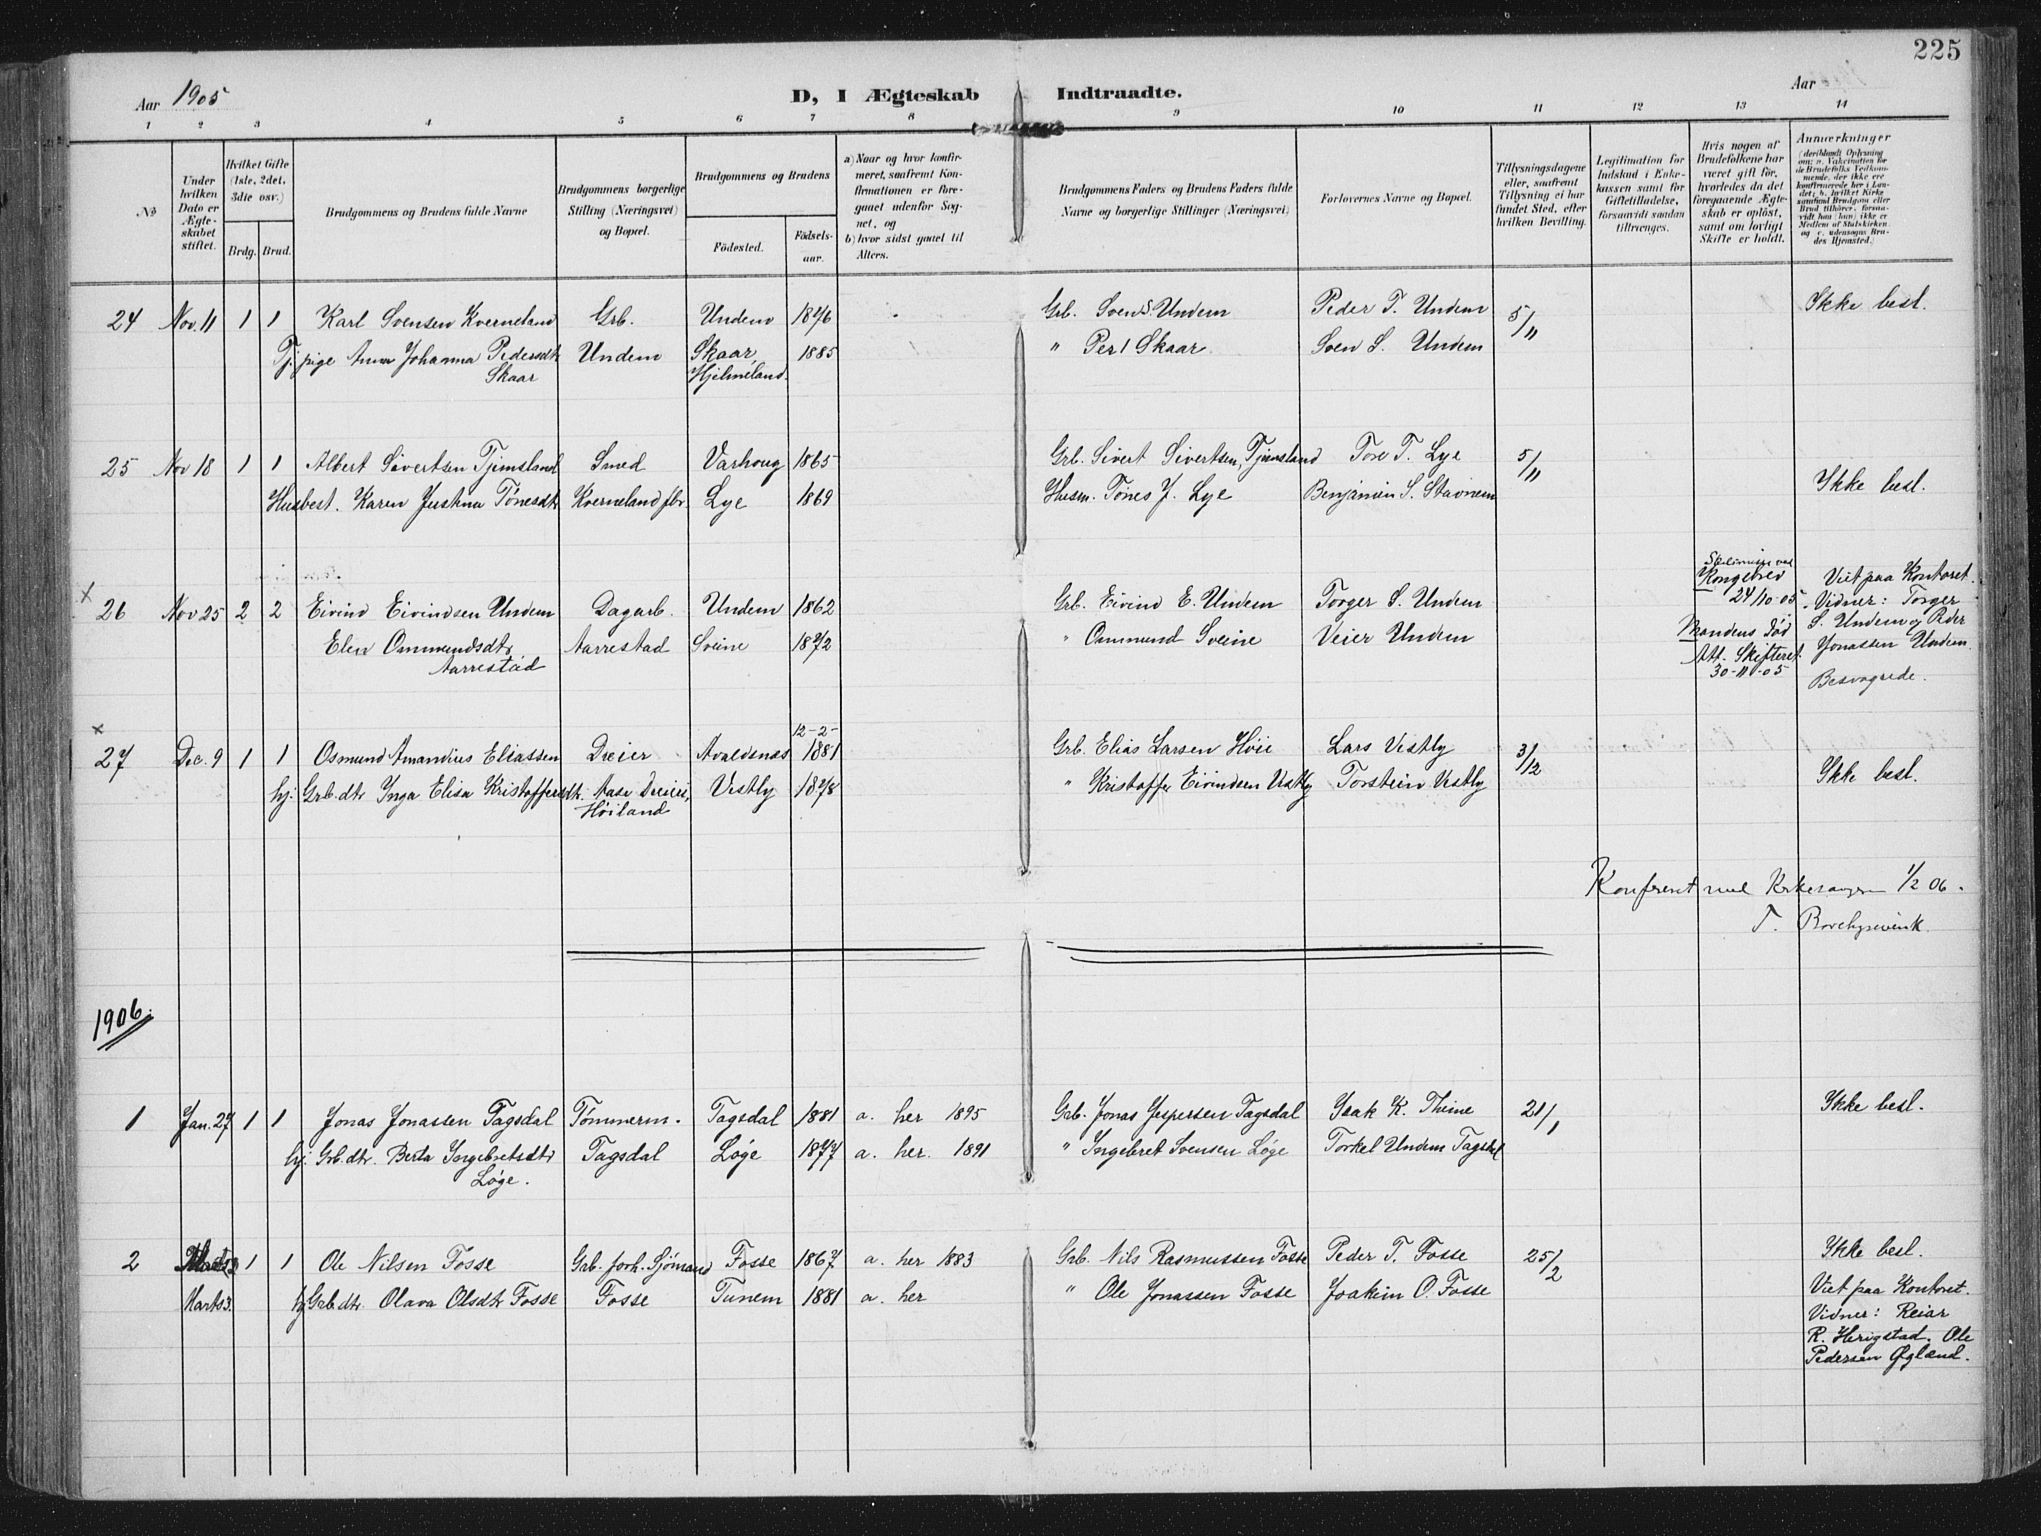 225
Aar 1905
D, I Ægteskab Indtraadte.
Aar
1 2 3 4 5 6 7 8 9 10 11 12 13 14
No
Under hvilken Dato er Ægteskabet stiftet.
Hvilket Gifte (1ste, 2det, 3die osv.)
Brdg. Brud.
Brudgommens og Brudens fulde Navne
Brudgommens borgerlige Stilling (Næringsvei) og Bopæl.
Brudgommens og Brudens
Fødested.
Fødselsaar.
a) Naar og hvor konfirmeret, saafremt Konfirmationen er foregaaet udenfor Sognet, og
b) hvor sidst gaaet til Alters.
Brudgommens Faders og Brudens Faders fulde Navne og borgerlige Stillinger (Næringsvei)
Forlovernes Navne og Bopæl.
Tillysningsdagene eller, saafremt Tillysning ei har fundet Sted, efter hvilken Bevilling.
Legitimation for Indskud i Enkekassen samt for Giftetilladelse, forsaavidt saadan tiltrænges.
Hvis nogen af Brudefolkene har været gift før, hvorledes da det foregaaende Ægteskab er opløst, samt om lovligt Skifte er holdt.
Anmerkninger
(deriblandt Oplysning om: a. Vakcination for de Brudefolks Vedkommende, der ikke ere konfirmerede her i Landet; b. hvilket Kirkesamfund Brudgom eller Brud tilhører, forsaavidt han (hun) ikke er Medlem af Statskirken, og c. udensogns Brudes Hjemsted.)
24 Nov. 11 1 1 Karl Svensen Kverneland Grb. Undem 1876 Grb. Sven S. Undem Peder T. Undem 5/11 Ikke besl.
Tj. pige Anna Johanna Pedersdtr Undem Skaar, 1885 " Per I Skaar Sven S. Undem
Skaar Hjelmeland.
25 Nov 18 1 1 Albert Sivertsen Tjemsland Smed Varhoug 1865 Grb. Sivert Sivertsen, Tjemsland Tore T. Lye 5/11
Husbest. Karen Justina Tønesdtr Kverneland fbr. Lye 1869 Husm. Tønes J. Lye Benjamin S. Stavnem Ikke besl.
26 Nov 25 2 2 Eivind Eivindsen Undem Dagarb. Undem 1862 Grb. Eivind E. Undem Torger S. Undem
Elen Ommundsdtr Aarrestad Sveine 1872 " Ommund Sveine Veier Undem
Aarrestad
Kongebrev
24/10 05
Mandens død
Att. Skifteret
30-11-05
Viet paa Kontoret.
Vidner: Torger
S. Undem og Peder
Jonassen Undem.
Besvogrede.
12-2-
27 Dec. 9 1 1 Osmund Amandius Eliassen Dreier Avaldsnes 1881 Grb. Elias Larsen Høie Lars Vestly 3/12
hj. Grb.dtr Inga Elisa Kristoffersdtr. Aase Dreieri, Vestly 1878 " Kristoffer Eivindsen Vestly Torstein Vestly Ikke besl.
Høiland
Konfereret med Kirkesangeren 1/2 06.
T.
1906.
1 Jan. 27 1 1 Jonas Jonassen Tagsdal Tømmerm. Tagsdal 1881 a. her 1895 Grb. Jonas Jespersen Tagsdal Isak K. Thime 21/1 Ikke besl.
hj. Grb.dtr. Berta Ingebretsdtr Tagsdal Løge 1877 a. her. 1891 " Ingebret Svensen Løge Torkel Undem Tagsdal
Løge.
2 1 1 Ole Nilsen Fosse Grb. forh. Sjømand Fosse 1867 a. her 1883 Grb. Nils Rasmussen Fosse Peder T. Fosse 25/2 Ikke besl.
Marts 3. hj Grb.dtr. Olava Olsdtr Fosse Fosse Tunem 1881 a. her " Ole Jonassen Fosse Joakim O. Fosse
Viet paa Kontoret.
Vidner: Reiar
R. Herigstad. Ole
Pedersen Øgland.